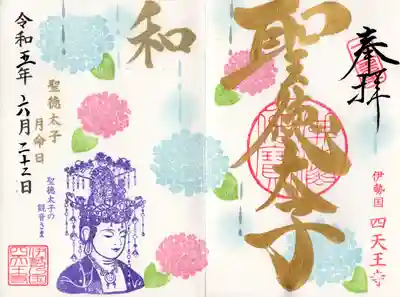 奉拝
聖徳太子
伊勢国 四天王寺
和
聖徳太子
月命日
令和五年六月二十二日
聖徳太子の
観音さま